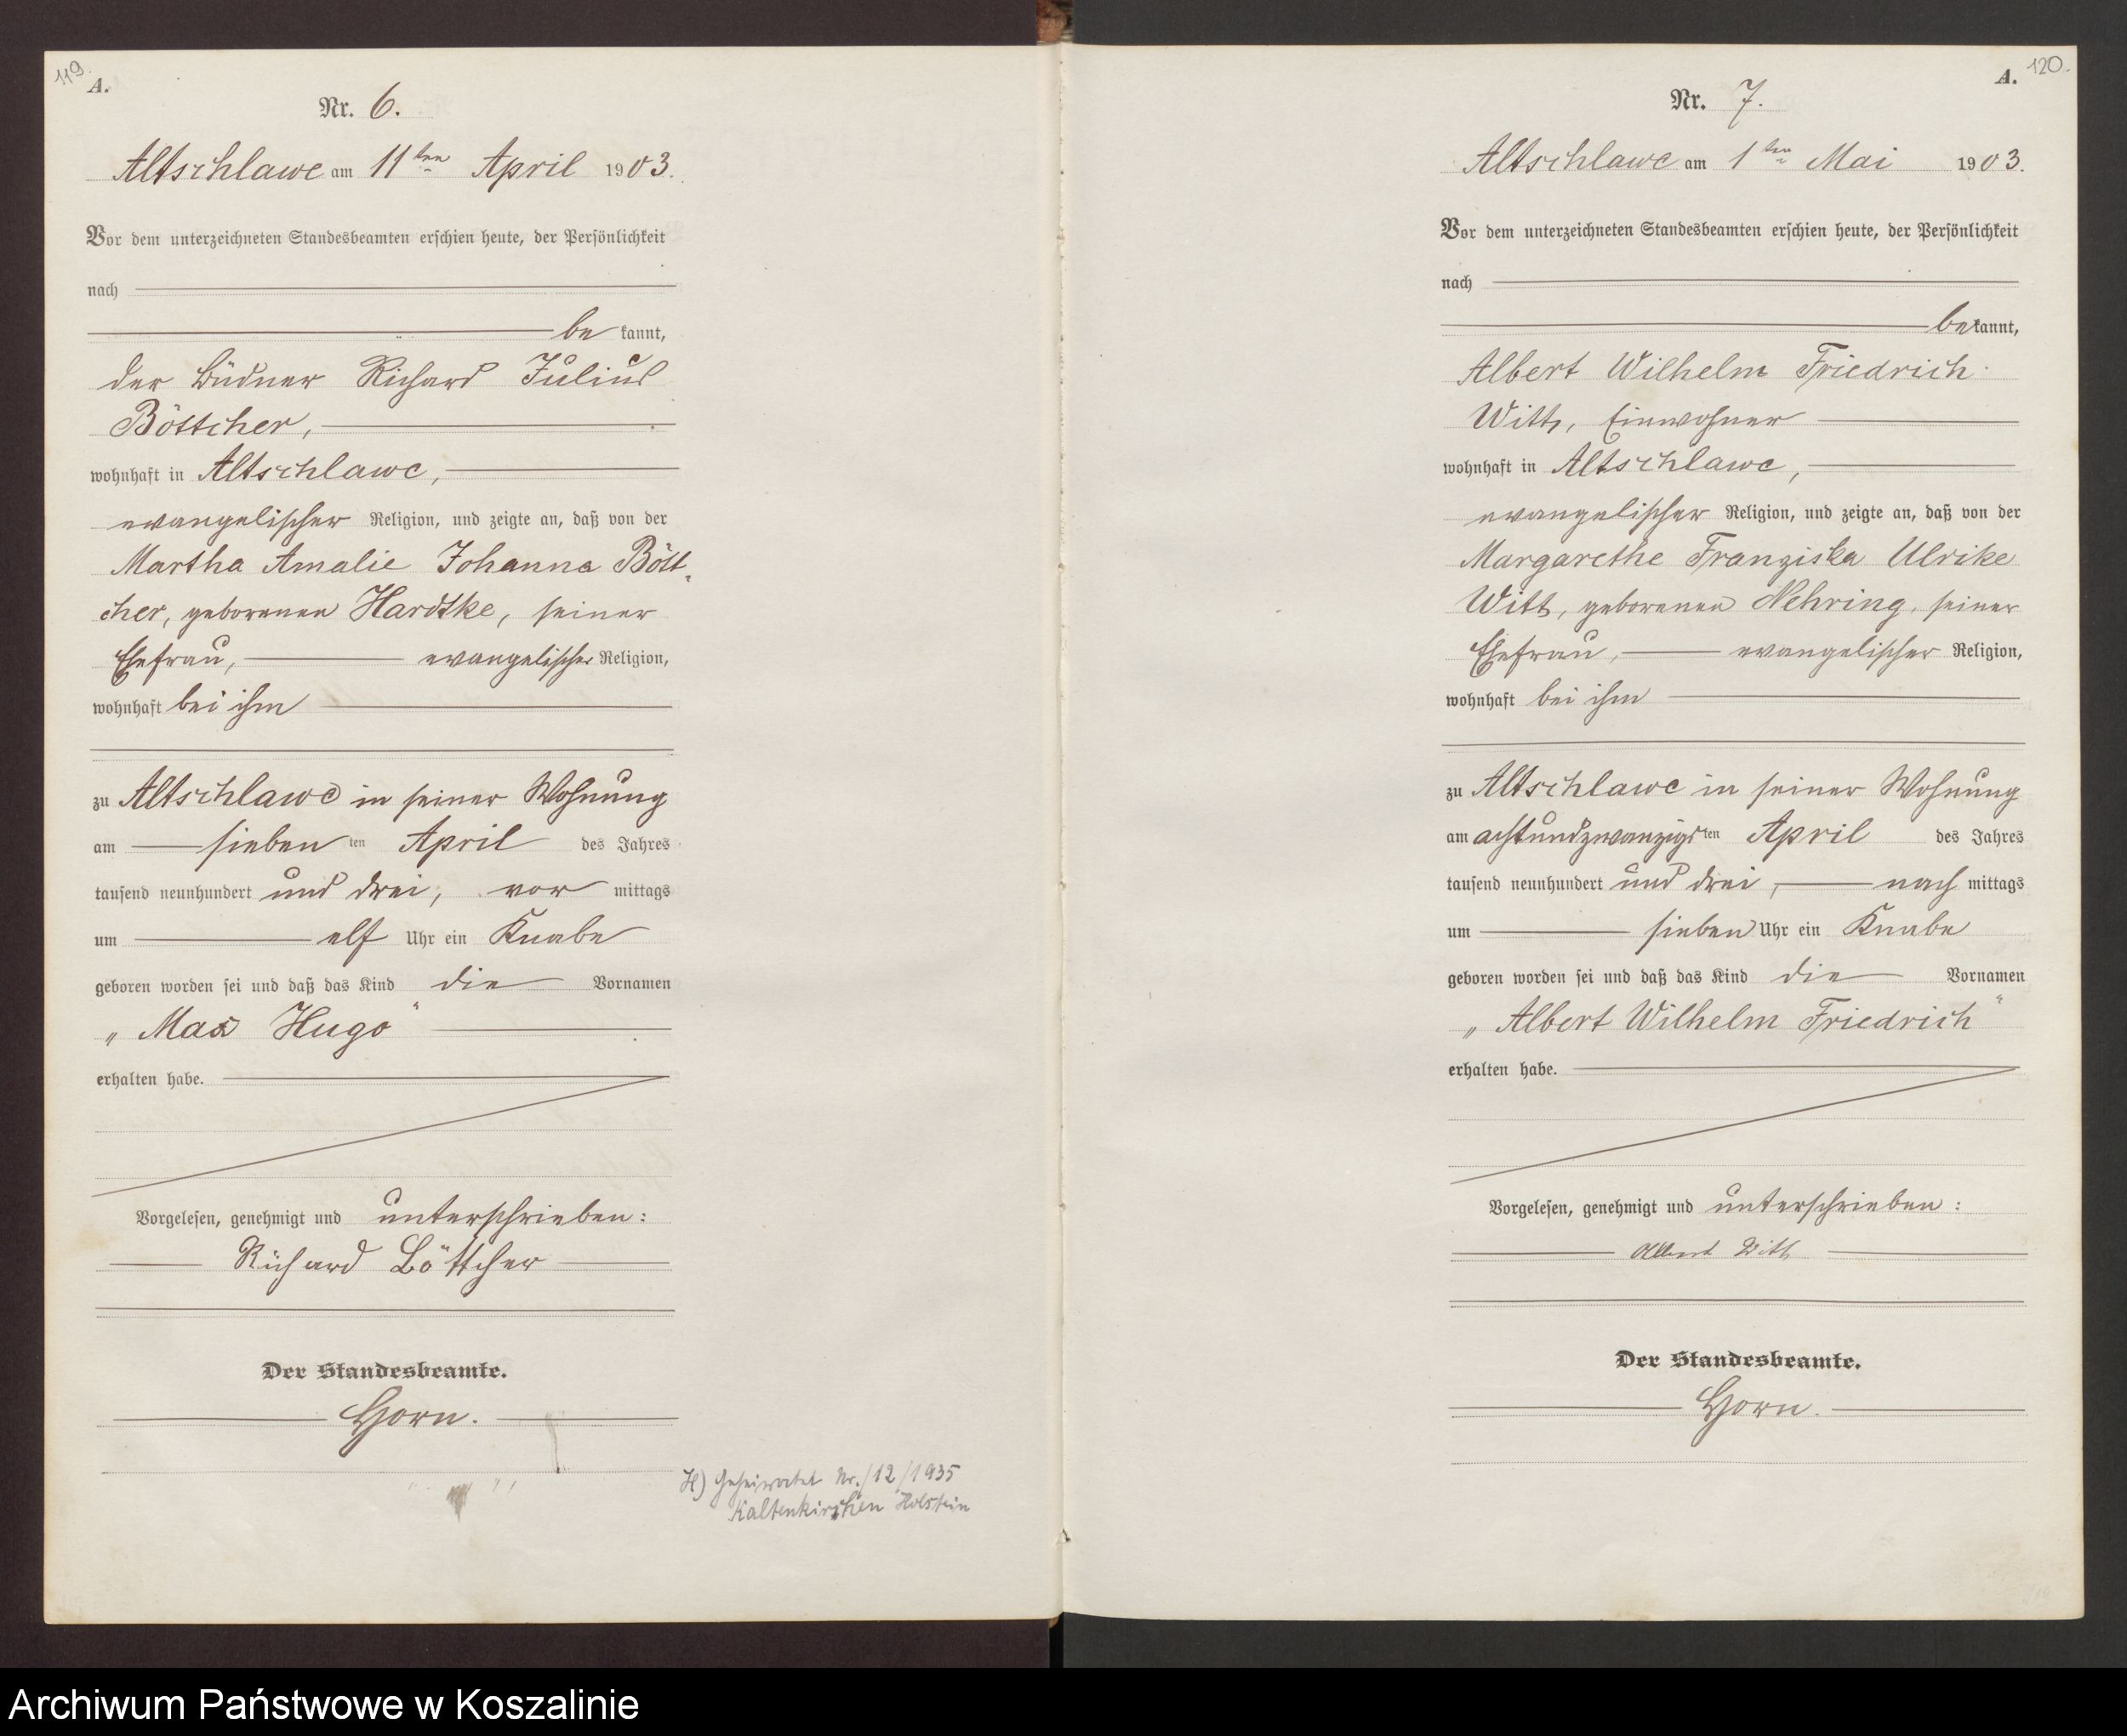 119.
A.
Nr. 6.
Altschlawe am 11ten April 1903.
Vor dem unterzeichneten Standesbeamten erschien heute, der Persönlichkeit
nach
be kannt,
der Büdner Richard Julius
Böttcher,
wohnhaft in Altschlawe,
evangelischer Religion, und zeigte an, daß von der
Martha Amalie Johanna Bött-
cher, geborenen Hardtke, seiner
Ehefrau, evangelischer Religion,
wohnhaft bei ihm
zu Altschlawe in seiner Wohnung
am sieben ten April des Jahres
tausend neunhundert und drei, vor mittags
um elf Uhr ein Knabe
geboren worden sei und daß das Kind die Vornamen
„Max Hugo“
erhalten habe.
Vorgelesen, genehmigt und unterschrieben:
Richard Böttcher
Der Standesbeamte.
Horn.
H) Geheiratet Nr./12/1935
Kaltenkirchen Holstein
120.
A.
Nr. 7.
Altschlawe am 1ten Mai 1903.
Vor dem unterzeichneten Standesbeamten erschien heute, der Persönlichkeit
nach
bekannt,
Albert Wilhelm Friedrich
Witt, Einwohner
wohnhaft in Altschlawe,
evangelischer Religion, und zeigte an, daß von der
Margarethe Franziska Ulrike
Witt, geborenen Nehring, seiner
Ehefrau, evangelischer Religion,
wohnhaft bei ihm
zu Altschlawe in seiner Wohnung
am achtundzwanzigsten April des Jahres
tausend neunhundert und drei, nach mittags
um sieben Uhr ein Knabe
geboren worden sei und daß das Kind die Vornamen
„Albert Wilhelm Friedrich“
erhalten habe.
Vorgelesen, genehmigt und unterschrieben:
Albert Witt
Der Standesbeamte.
Horn.
Archiwum Państwowe w Koszalinie